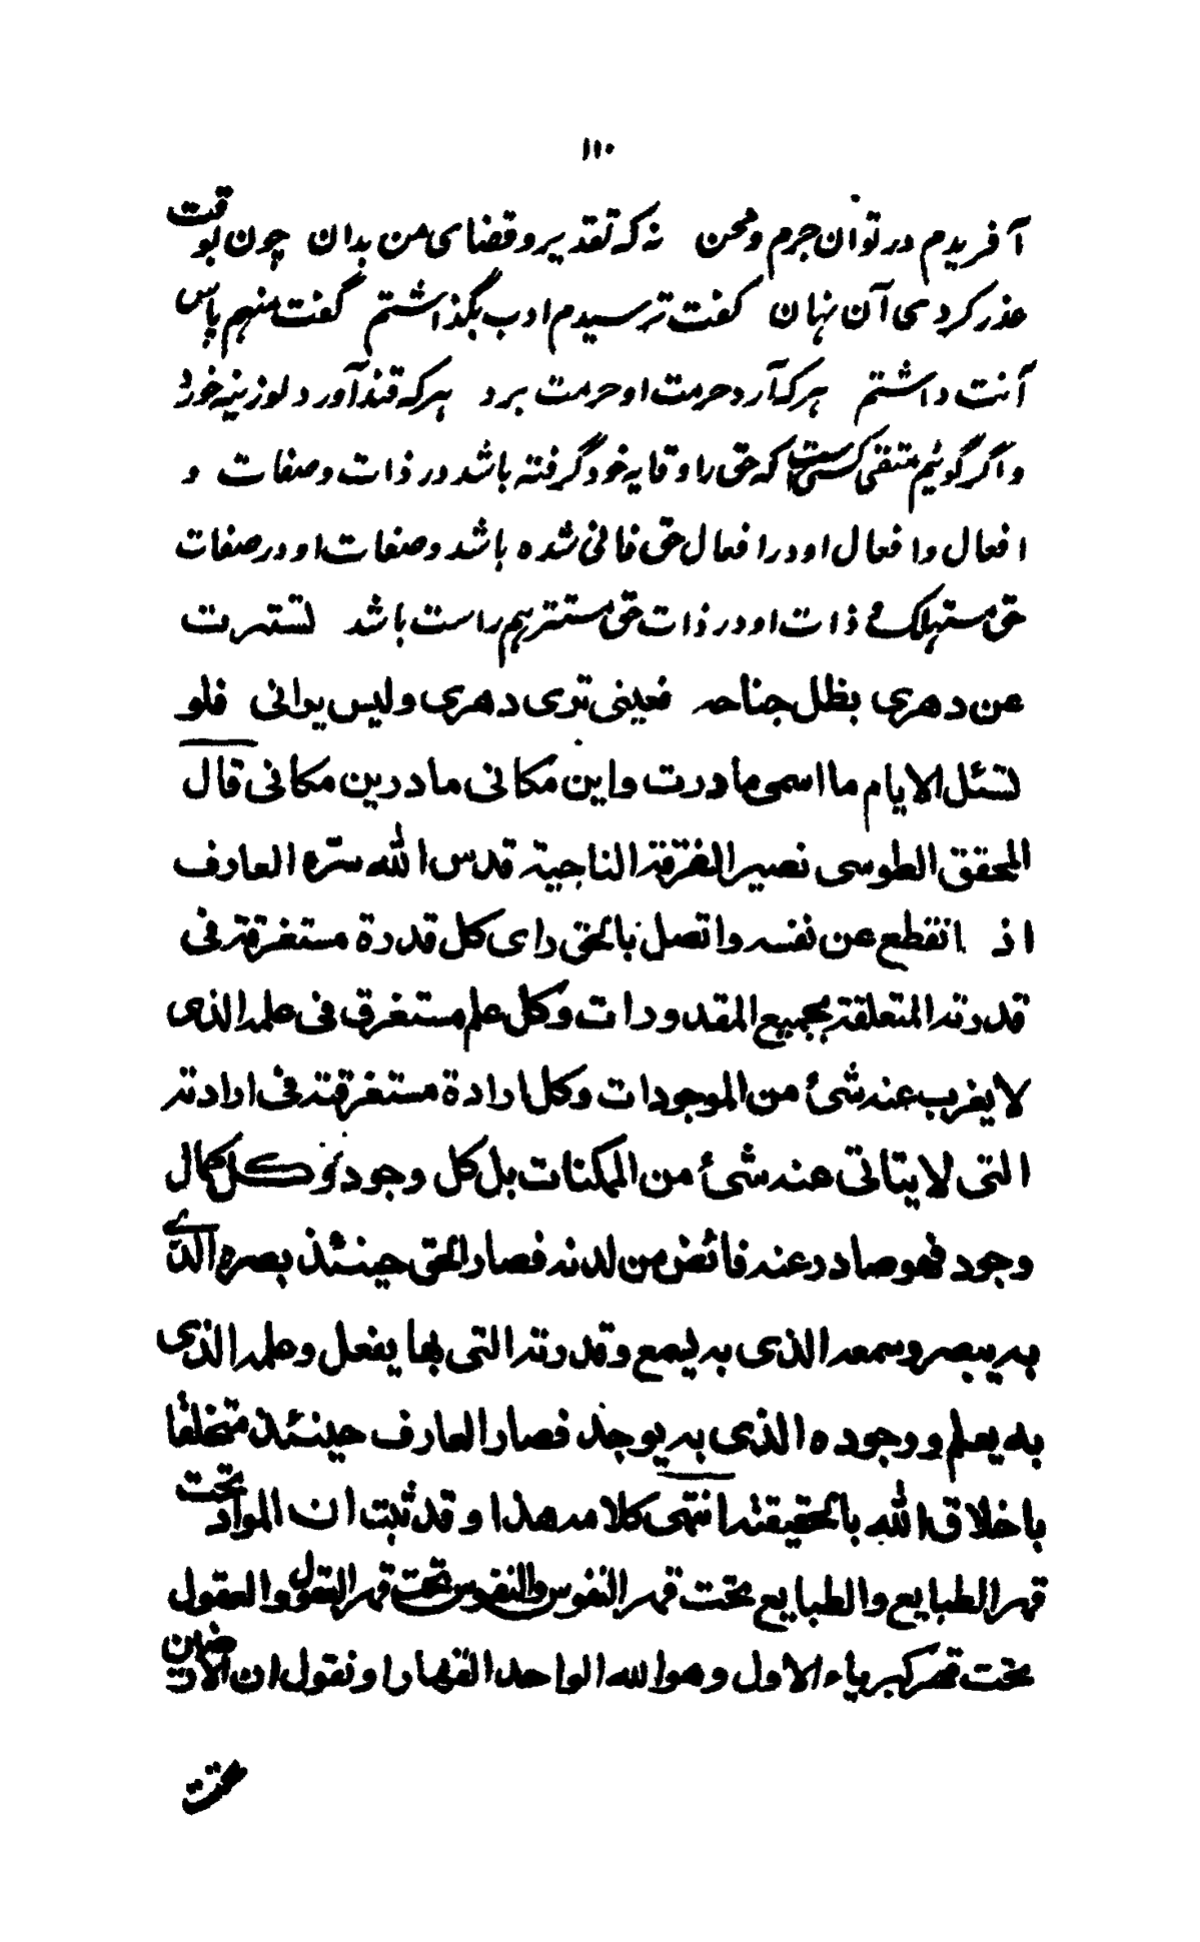 ۱۱۰
آفریدم در تو آن جرم و محن نه که تقدیر و قضای من بدان چون بوقت
عذر کردی آن نهان گفت ترسیدم ادب بگذاشتم گفت منهم پاس
آنت داشتم هرکه آرد حرمت او حرمت برد هرکه قند آورد لوزینه خورد
و اگر گوئیم متقی کسی است که حق را وقایه خود گرفته باشد در ذات و صفات و
افعال و افعال او در افعال حق فانی شده باشد و صفات او در صفات
حق مستهلک و ذات او در ذات حق مستتر هم راست باشد تسترت
عن دهری بظل جناحه فعینی تری دهری ولیس یرانی فلو
تسئل الایام ما اسمی ما درت واین مکانی ما درین مکانی قال
المحقق الطوسی نصیر الفرقة الناجیة قدس الله سره العارف
اذ انقطع عن نفسه واتصل بالحق رای کل قدرة مستغرقة فی
قدرته المتعلقة بجمیع المقدورات وکل علم مستغرق فی علمه الذی
لا یغرب عنه شئ من الموجودات وکل ارادة مستغرقة فی ارادته
التی لا یتاتی عنه شئ من الممکنات بل کل وجود وکل کمال
وجود فهو صادر عنه فائض من لدنه فصار الحق حینئذ بصره الذی
به یبصر وسمعه الذی به یسمع وقدرته التی بها یفعل وعلمه الذی
به یعلم ووجوده الذی به یوجد فصار العارف حینئذ متخلقا
باخلاق الله بالحقیقة انتهی کلامه هذا وقد ثبت ان المواد تحت
قهر الطبایع والطبایع تحت قهر النفوس والنفوس تحت قهر العقول والعقول
تحت قهر کبریاء الاول وهو الله الواحد القهار او نقول ان الارضین
تحت